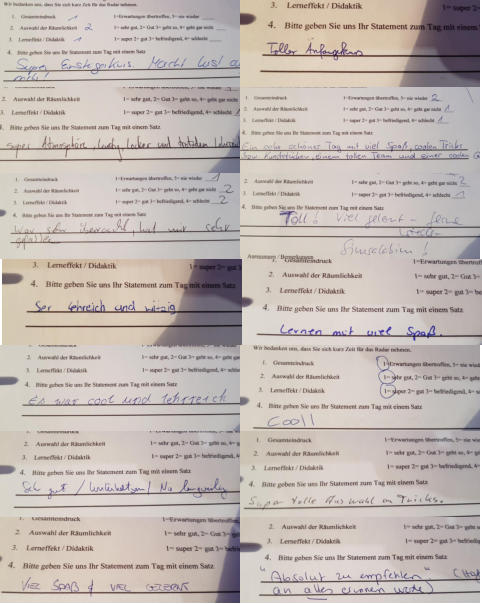 Wir bedanken uns, dass Sie sich kurz Zeit für das Radar nehmen.
1. Gesamteindruck 1 1=Erwartungen übertroffen, 5= nie wieder
2. Auswahl der Räumlichkeit 2 1= sehr gut, 2= Gut 3= geht so, 4= geht gar nicht
3. Lerneffekt / Didaktik 1 1= super 2= gut 3= befriedigend, 4= schlecht
4. Bitte geben Sie uns Ihr Statement zum Tag mit einem Satz
Super Einsteigerkurs. Macht Lust a
mehr!
3. Lerneffekt / Didaktik 1= super 2=
4. Bitte geben Sie uns Ihr Statement zum Tag mit eine
Toller Anfangskurs
2. Auswahl der Räumlichkeit 1= sehr gut, 2= Gut 3= geht so, 4= geht gar nicht
3. Lerneffekt / Didaktik 1= super 2= gut 3= befriedigend, 4= schlecht
4. Bitte geben Sie uns Ihr Statement zum Tag mit einem Satz
super Atmosphäre, lustig, locker und trotzdem
1. Gesamteindruck 1=Erwartungen übertroffen, 5= nie wieder 2
2. Auswahl der Räumlichkeit 1= sehr gut, 2= Gut 3= geht so, 4= geht gar nicht 1
3. Lerneffekt / Didaktik 1= super 2= gut 3= befriedigend, 4= schlecht 1
4. Bitte geben Sie uns Ihr Statement zum Tag mit einem Satz
Ein sehr schöner Tag mit viel Spaß, coolen Tricks
einem tollen Team und einer coolen
1. Gesamteindruck 1=Erwartungen übertroffen, 5= nie wieder 1
2. Auswahl der Räumlichkeit 1= sehr gut, 2= Gut 3= geht so, 4= geht gar nicht 2
3. Lerneffekt / Didaktik 1= super 2= gut 3= befriedigend, 4= schlecht 2
4. Bitte geben Sie uns Ihr Statement zum Tag mit einem Satz
War sehr überrascht, hat mir sehr
gefallen
2. Auswahl der Räumlichkeit 1= sehr gut, 2= Gut 3= geht so, 4= geht gar nicht 2
3. Lerneffekt / Didaktik 1= super 2= gut 3= befriedigend, 4= schlecht 1
4. Bitte geben Sie uns Ihr Statement zum Tag mit einem Satz
Toll! Viel gelernt - gerne
wieder
Anmerkungen / Bemerkungen
3. Lerneffekt / Didaktik 1= super 2= gut 3
4. Bitte geben Sie uns Ihr Statement zum Tag mit einem Satz
Ser lehreich und witzig
1. Gesamteindruck 1=Erwartungen übertroffen
2. Auswahl der Räumlichkeit 1= sehr gut, 2= Gut 3= ge
3. Lerneffekt / Didaktik 1= super 2= gut 3= befri
4. Bitte geben Sie uns Ihr Statement zum Tag mit einem Satz
Lernen mit viel Spaß.
Wir bedanken uns, dass Sie sich kurz Zeit für das Radar nehmen.
1. Gesamteindruck 1=Erwartungen übertroffen, 5= nie wieder
2. Auswahl der Räumlichkeit 1= sehr gut, 2= Gut 3= geht so, 4= geht gar
3. Lerneffekt / Didaktik 1= super 2= gut 3= befriedigend, 4= schl
4. Bitte geben Sie uns Ihr Statement zum Tag mit einem Satz
Es war cool und lehrreich
Wir bedanken uns, dass Sie sich kurz Zeit für das Radar nehmen.
1. Gesamteindruck 1=Erwartungen übertroffen, 5= nie wie
2. Auswahl der Räumlichkeit 1= sehr gut, 2= Gut 3= geht so, 4= ge
3. Lerneffekt / Didaktik 1= super 2= gut 3= befriedigend, 4=
4. Bitte geben Sie uns Ihr Statement zum Tag mit einem Satz
Cool!
2. Auswahl der Räumlichkeit 1= sehr gut, 2= Gut 3= geht so, 4= g
3. Lerneffekt / Didaktik 1= super 2= gut 3= befriedigend, 4
4. Bitte geben Sie uns Ihr Statement zum Tag mit einem Satz
Sehr gut /
1. Gesamteindruck 1=Erwartungen übertroffen, 5= nie wie
2. Auswahl der Räumlichkeit 1= sehr gut, 2= Gut 3= geht so, 4= ge
3. Lerneffekt / Didaktik 1= super 2= gut 3= befriedigend, 4=
4. Bitte geben Sie uns Ihr Statement zum Tag mit einem Satz
Super tolle Auswahl an Tricks.
1. Gesamteindruck 1=Erwartungen übertroffen,
2. Auswahl der Räumlichkeit 1= sehr gut, 2= Gut 3= ge
3. Lerneffekt / Didaktik 1= super 2= gut 3= bef
4. Bitte geben Sie uns Ihr Statement zum Tag mit einem Satz
VIEL SPAß & VIEL GELERNT
2. Auswahl der Räumlichkeit 1= sehr gut, 2= Gut 3= geht s
3. Lerneffekt / Didaktik 1= super 2= gut 3= befriedig
4. Bitte geben Sie uns Ihr Statement zum Tag mit einem Satz
"Absolut zu empfehlen"
an alles erinnern werde)